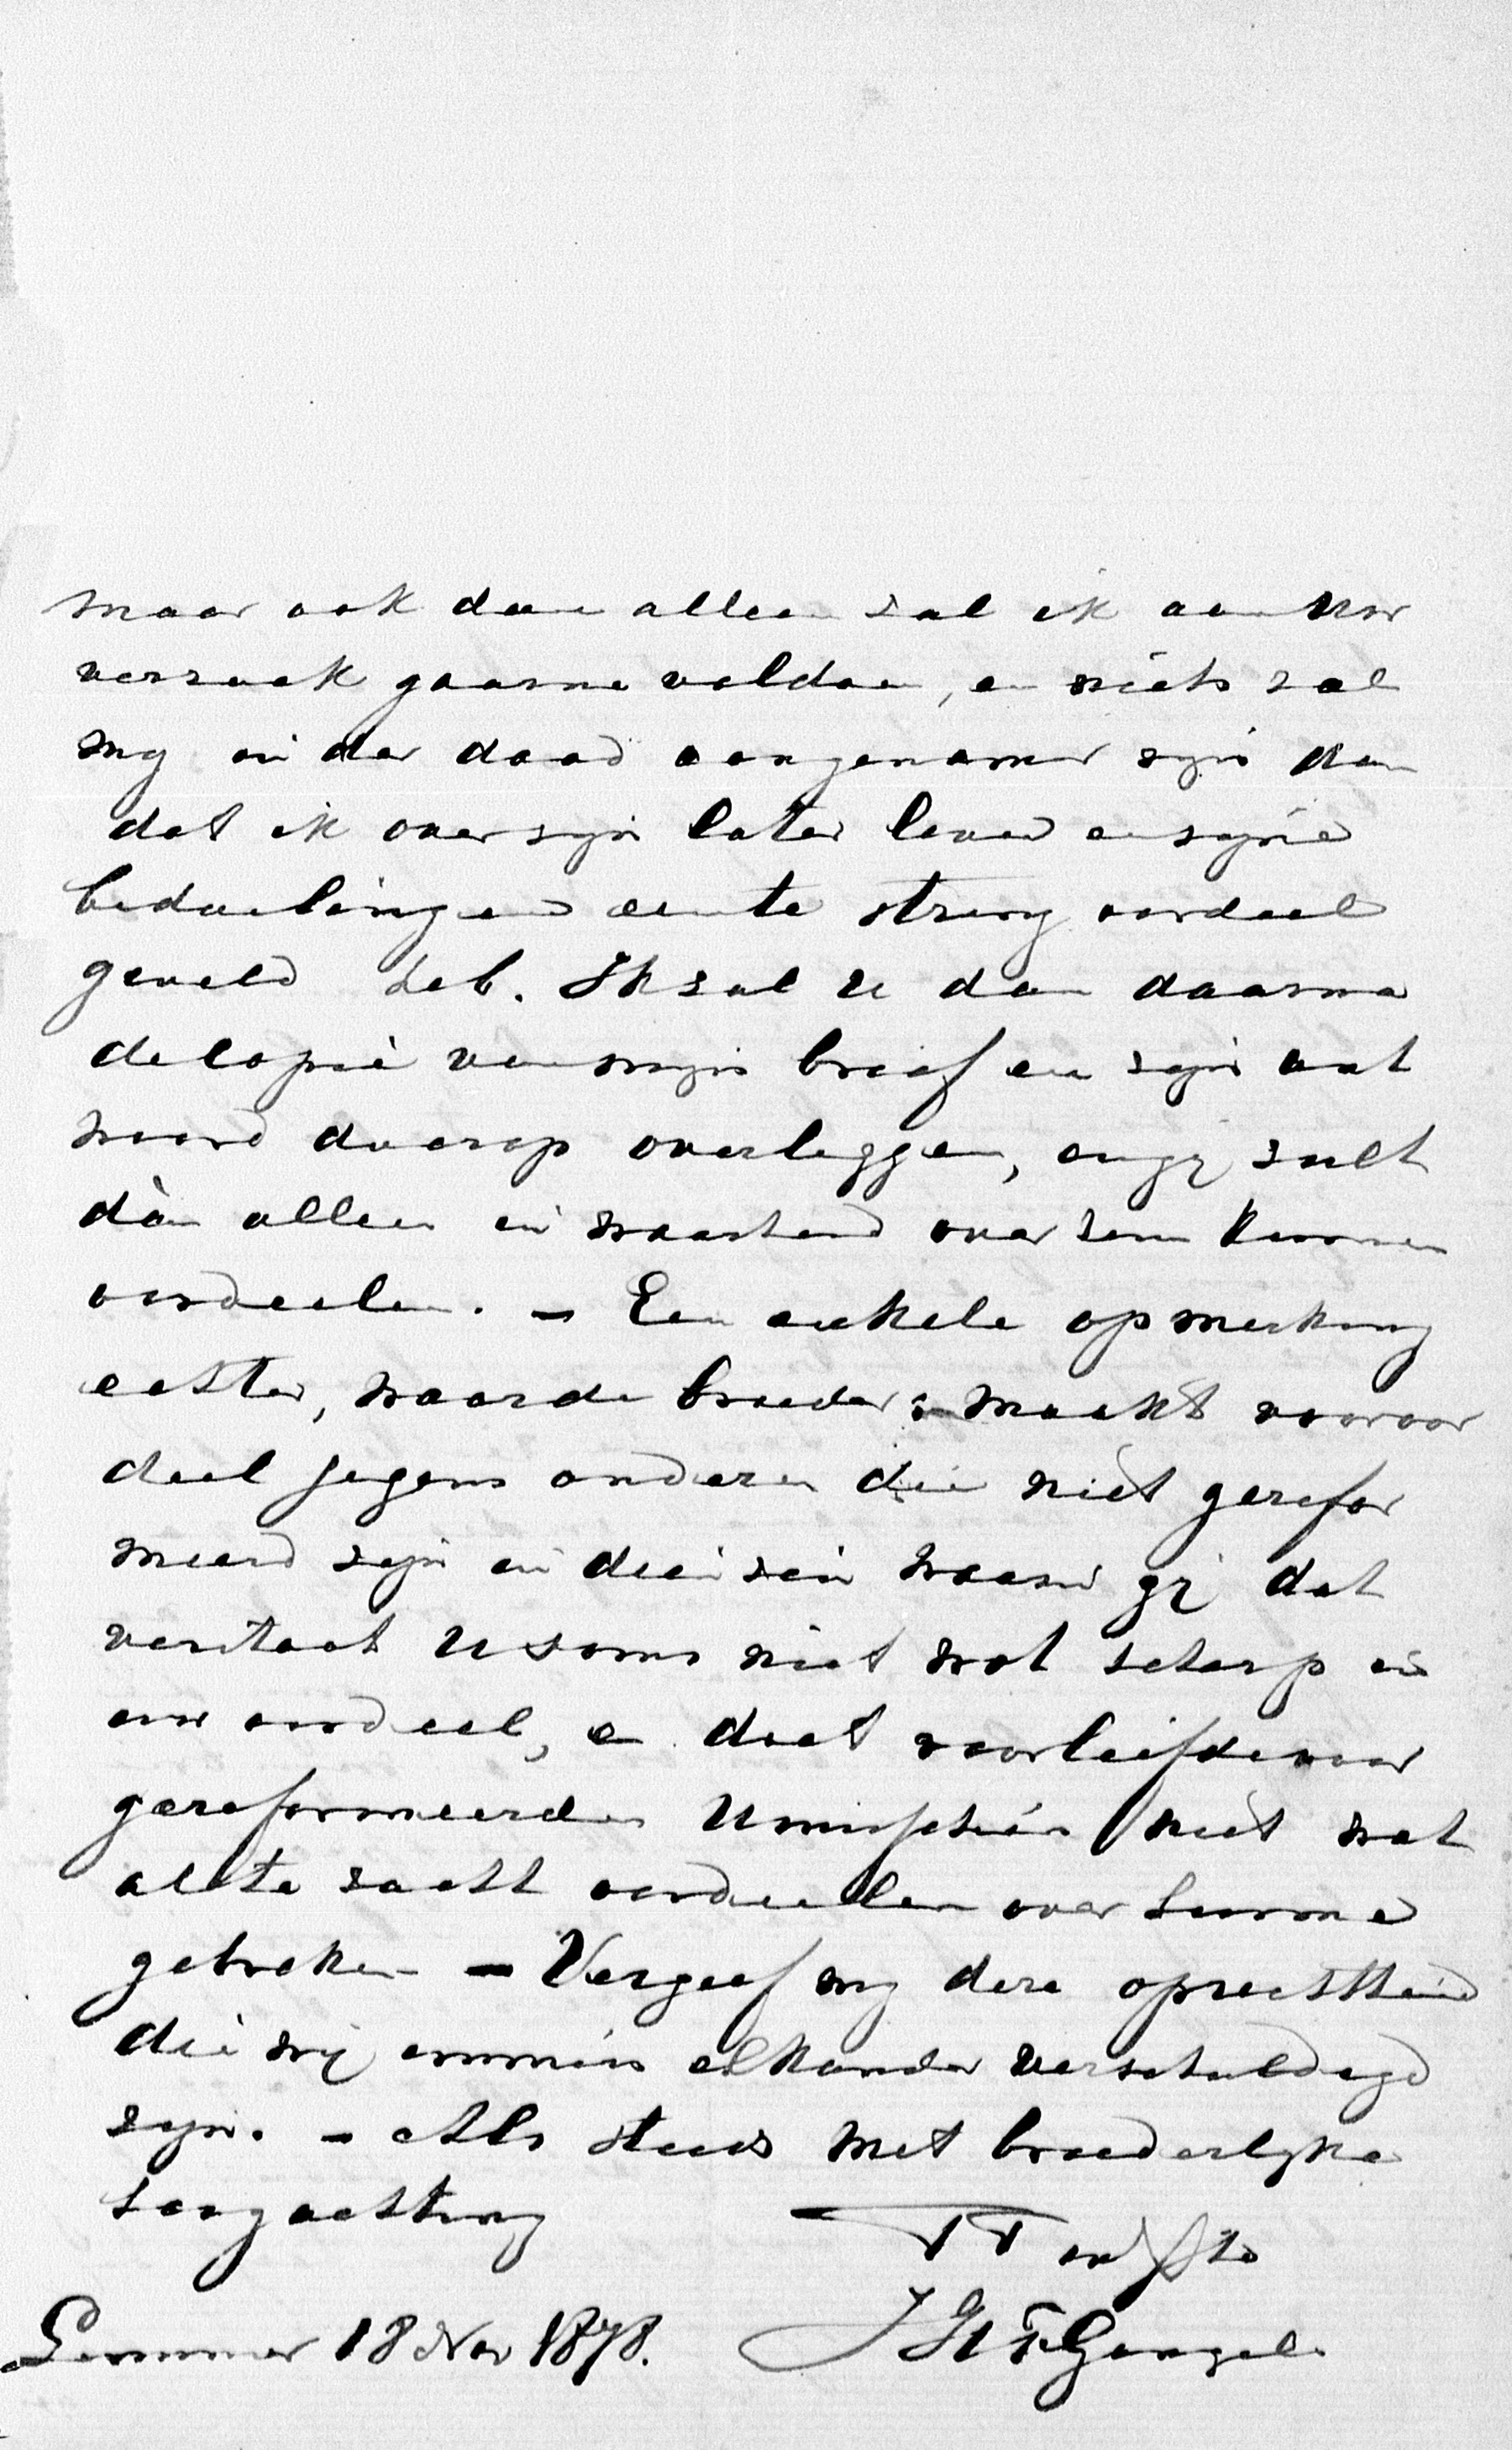 maar ook dan alleen zal ik aan Uw
verzoek gaarne voldoen, en niets zal
my in der daad aangenamer zyn dan
dat ik over zyn later leven en zyne
bedoelingen een te streng oordeel
geveld heb. Ik zal U dan daarna
de copie van myn brief en zyn ant
woord daarop overleggen, en gy zult
dàn alleen in waarheid over hem kunnen
oordeelen. – Een enkele opmerking
echter, waarde broeder; maakt vooroor
deel jegens anderen die niet gerefor
meerd zyn in dien zin waarin gy dat
verstaat U soms niet wat scherp in
uw oordeel, en doet voorliefde voor
gereformeerden U misschien niet wat
al te zacht oordeelen over hunne
gebreken – Vergeef my deze oprechtheid
die wy immers elkander verschuldigd
zyn. – Als steeds met broederlyke
hoogachting
TT in Xto
Lemmer 18 Nov 1878.